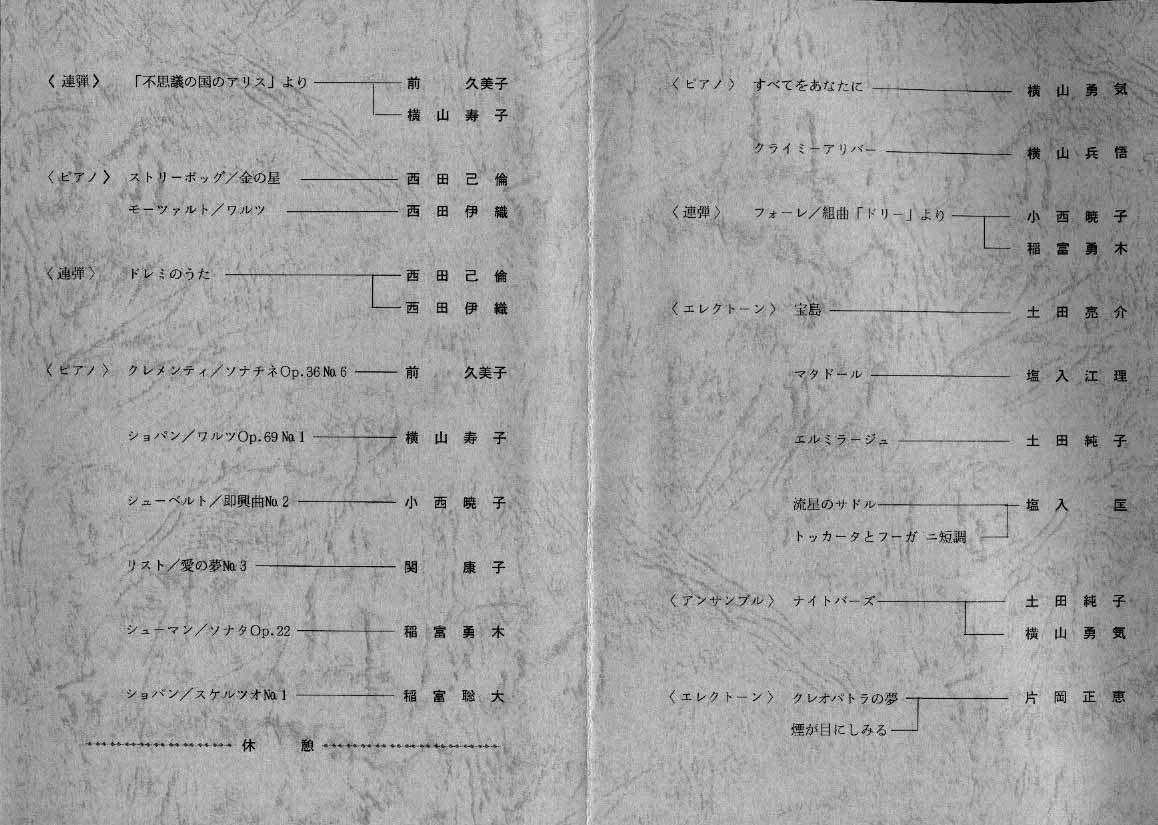 〈連弾〉 「不思議の国のアリス」より 前 久美子
横山寿子
〈ピアノ〉 ストリーボッグ／金の星 西田己倫
モーツァルト／ワルツ 西田伊織
〈連弾〉 ドレミのうた 西田己倫
西田伊織
〈ピアノ〉 クレメンティ／ソナチネOp.36 №6 前 久美子
ショパン／ワルツOp.69 №1 横山寿子
シューベルト／即興曲№2 小西暁子
リスト／愛の夢№3 関 康子
シューマン／ソナタOp.22 稲富勇木
ショパン／スケルツオ№1 稲富聡大
休 憩
〈ピアノ〉 すべてをあなたに 横山勇気
クライミーアリバー 横山兵悟
〈連弾〉 フォーレ／組曲「ドリー」より 小西暁子
稲富勇木
〈エレクトーン〉 宝島 土田亮介
マタドール 塩入江理
エルミラージュ 土田純子
流星のサドル 塩入 匡
トッカータとフーガ ニ短調
〈アンサンブル〉 ナイトバーズ 土田純子
横山勇気
〈エレクトーン〉 クレオパトラの夢 片岡正恵
煙が目にしみる